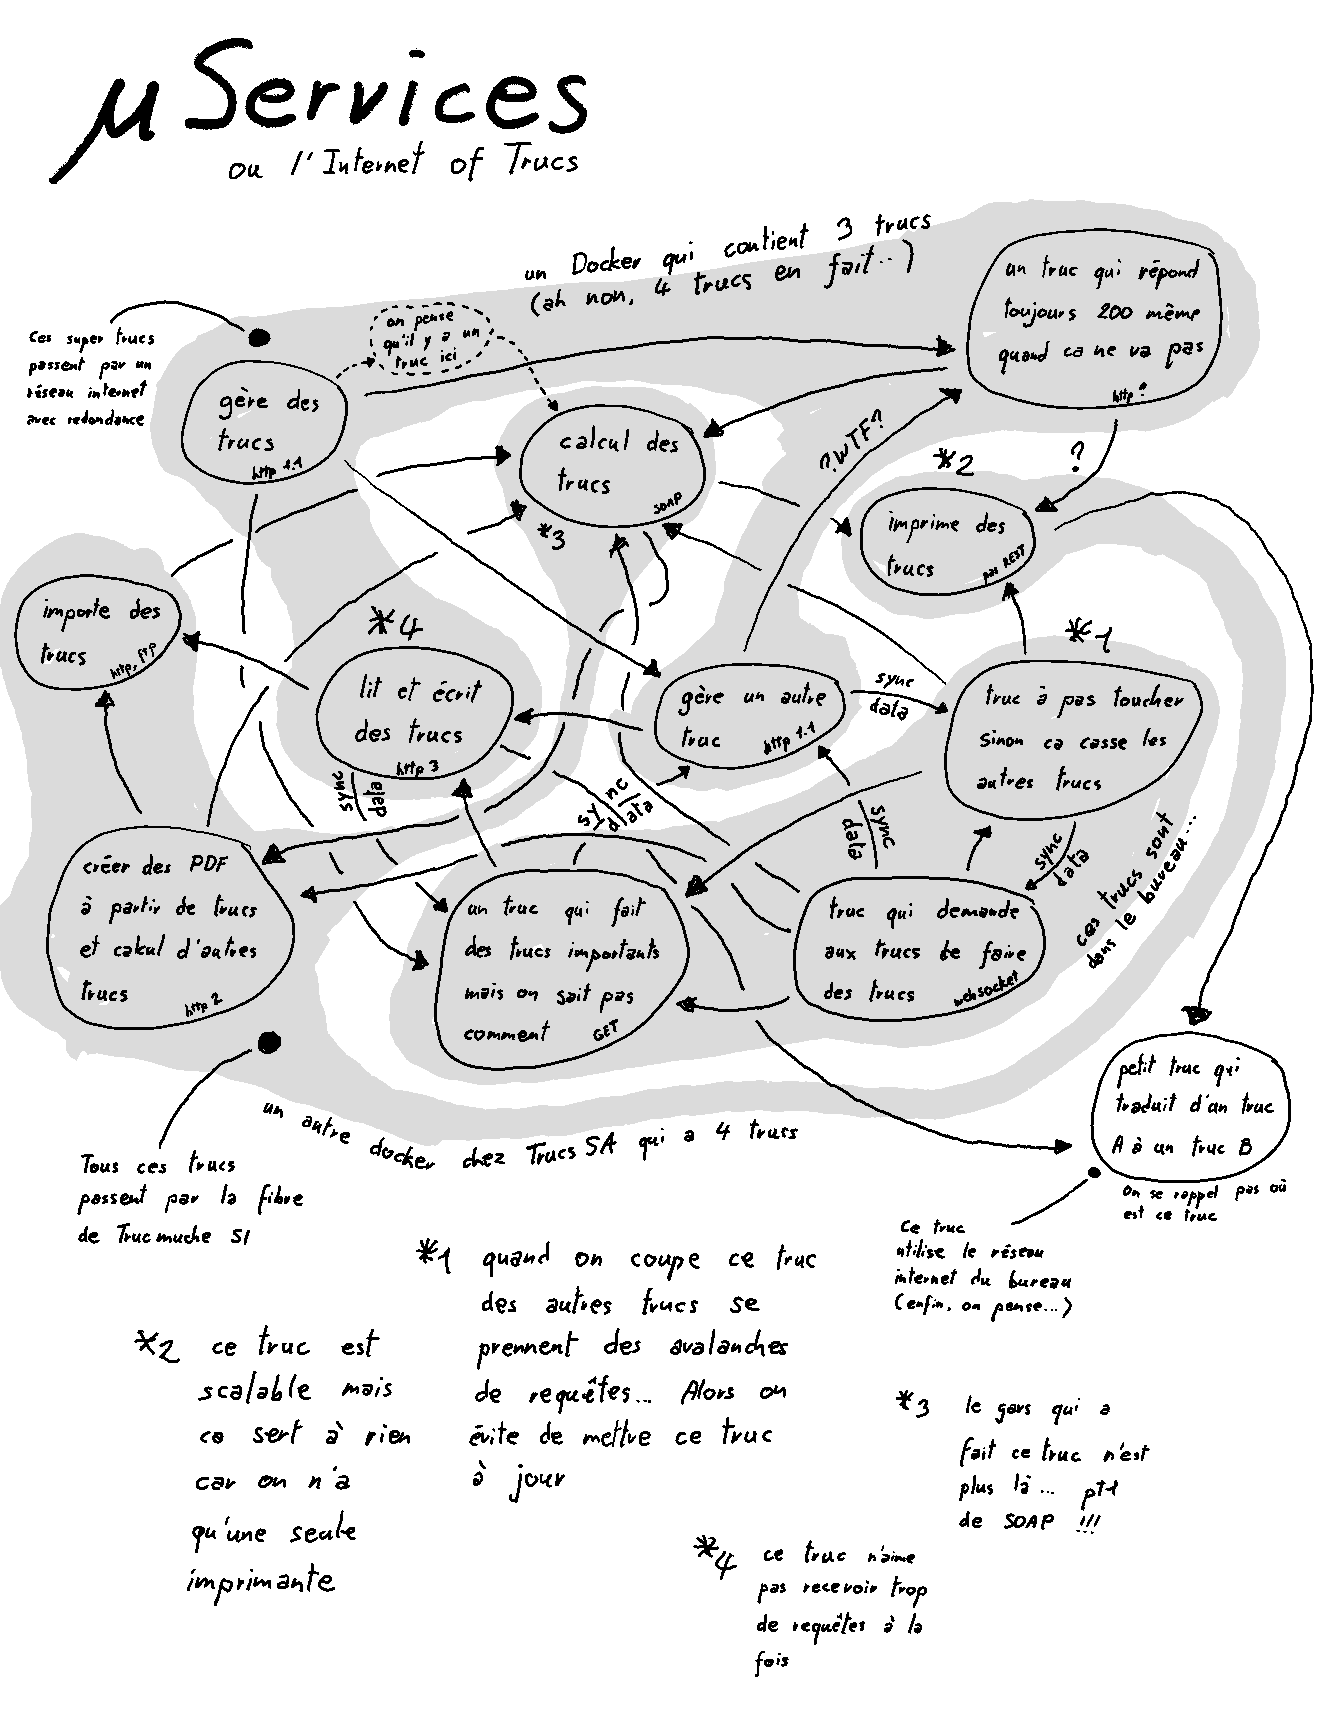 µServices
ou l'Internet of Trucs
un Docker qui contient 3 trucs
(ah non, 4 trucs en fait...)
un truc qui répond
toujours 200 même
quand ca ne va pas
http?
on pense
qu'il y a un
truc ici
Ces super trucs
passent par un
réseau internet
avec redondance
gère des
trucs
http 1.1
calcul des
trucs
SOAP
*3
?WTF?
*2
?
imprime des
trucs
pas REST
importe des
trucs
http, ftp
*4
lit et écrit
des trucs
http 3
sync
data
gère un autre
truc
http 1.1
sync
data
*1
truc à pas toucher
sinon ca casse les
autres trucs
sync
data
sync
data
sync
data
ces trucs sont
dans le bureau...
créer des PDF
à partir de trucs
et calcul d'autres
trucs
http 2
un truc qui fait
des trucs importants
mais on sait pas
comment
GET
truc qui demande
aux trucs de faire
des trucs
websocket
petit truc qui
traduit d'un truc
A à un truc B
On se rappel pas où
est ce truc
un autre docker chez Trucs SA qui a 4 trucs
Tous ces trucs
passent par la fibre
de Trucmuche SI
Ce truc
utilise le réseau
internet du bureau
(enfin, on pense...)
*1 quand on coupe ce truc
des autres trucs se
prennent des avalanches
de requêtes... Alors on
évite de mettre ce truc
à jour
*2 ce truc est
scalable mais
ca sert à rien
car on n'a
qu'une seule
imprimante
*3 le gars qui a
fait ce truc n'est
plus là... ptn
de SOAP !!!
*4 ce truc n'aime
pas recevoir trop
de requêtes à la
fois